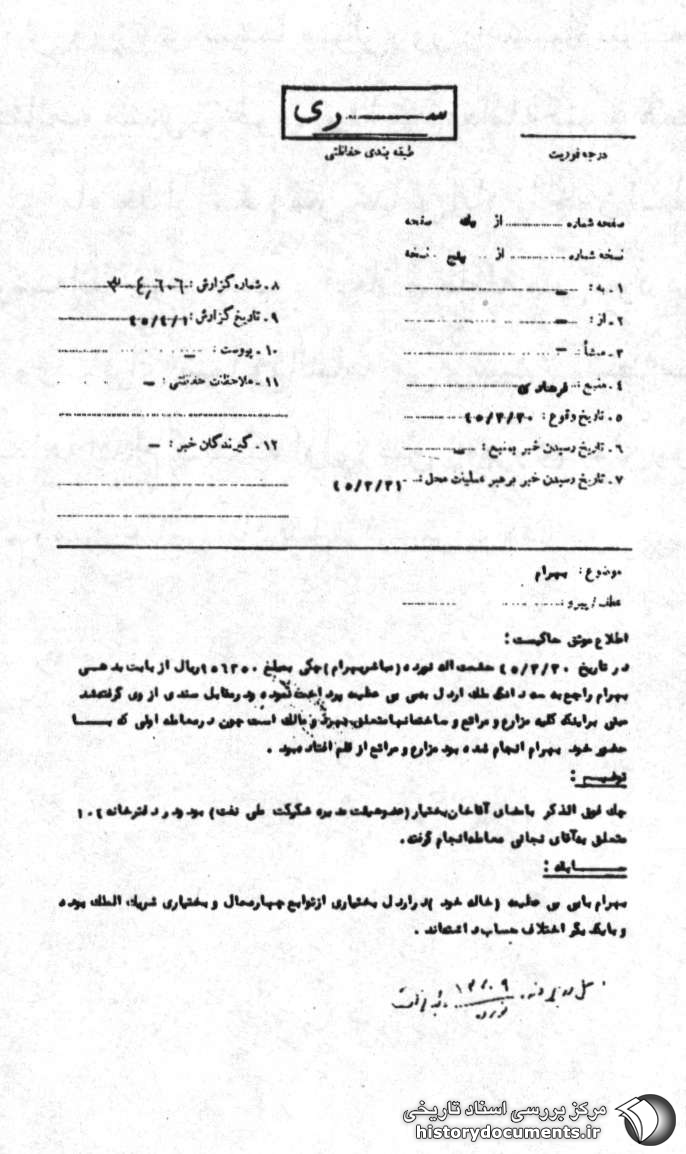 ســری
طبقه بندی حفاظتی
درجه فوریت
صفحه شماره از یک صفحه
نسخه شماره از پنج نسخه
۱ـ به : ـ
۲ـ از : ـ
۳ـ منشأ : ـ
۴ـ منبع : فرهادی
۵ـ تاریخ وقوع : ۴۵/۳/۳۰
۶ـ تاریخ رسیدن خبر بمنبع : ـ
۷ـ تاریخ رسیدن خبر برهبر عملیات محل : ۴۵/۳/۳۱
۸ـ شماره گزارش :
۹ـ تاریخ گزارش : ۴۵/۴/۱
۱۰ـ پیوست : ـ
۱۱ـ ملاحظات حفاظتی : ـ
۱۲ـ گیرندگان خبر : ـ
موضوع : بهرام
عطف / پیرو :
اطلاع موثق حاکیست :
در تاریخ ۴۵/۳/۳۰ حشمت اله (مباشر بهرام) چکی بمبلغ ریال از بابت بدهــی
بهرام راجع به سه دانگ ملک اردل به بی بی عظیمه پرداخت نموده و در مقابل سندی از وی گرفته شد
مبنی براینکه کلیه مزارع و مراتع و ساختمانها متعلق بهرد و مالک است چون در معامله اولی که بـــا
حضور خود بهرام انجام شده بود مزارع و مراتع از قلم افتاده بود .
توضیــح :
چک فوق الذکر بامضای آقاخان بختیار (عضو هیئت مدیره شرکت ملی نفت) بود و در دفترخانه ۱۰۴
متعلق به آقای نجاتی معامله انجام گرفت .
ســـابقه :
بهرام با بی بی عظیمه (خاله خود) در اردل بختیاری از توابع چهارمحال و بختیاری شریک الملک بوده
و با یکدیگر اختلاف حساب داشته‌اند .
مرکز بررسی اسناد تاریخی
historydocuments.ir